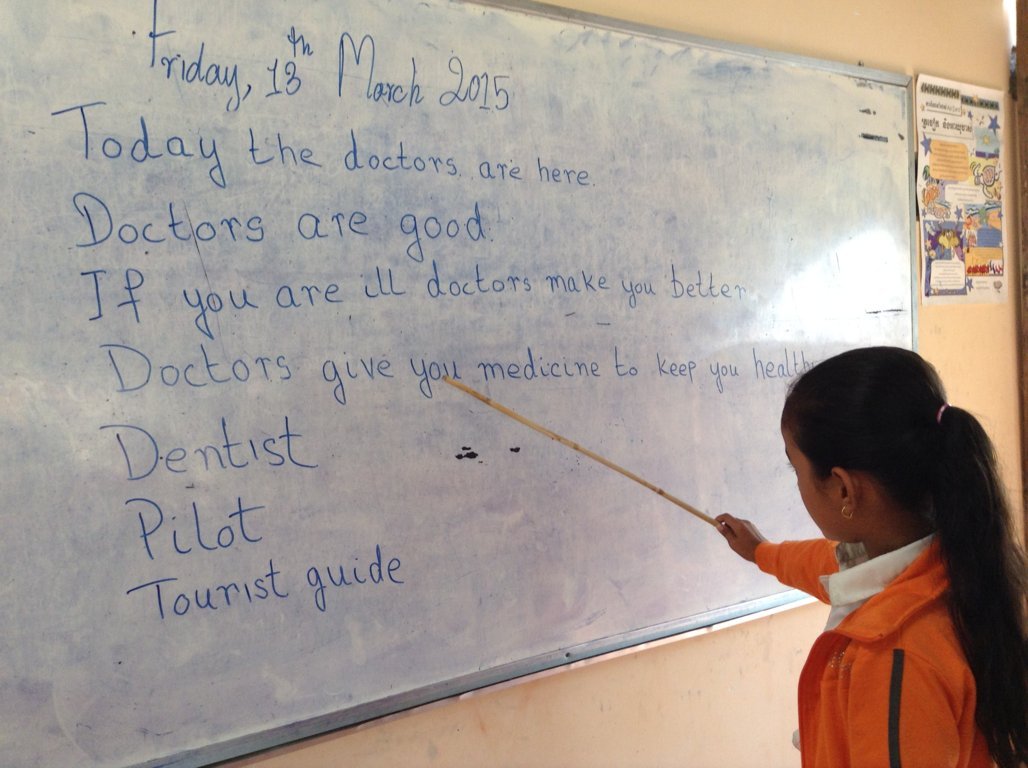 Friday, 13th March 2015
Today the doctors are here.
Doctors are good.
If you are ill doctors make you better
Doctors give you medicine to keep you
Dentist
Pilot
Tourist guide